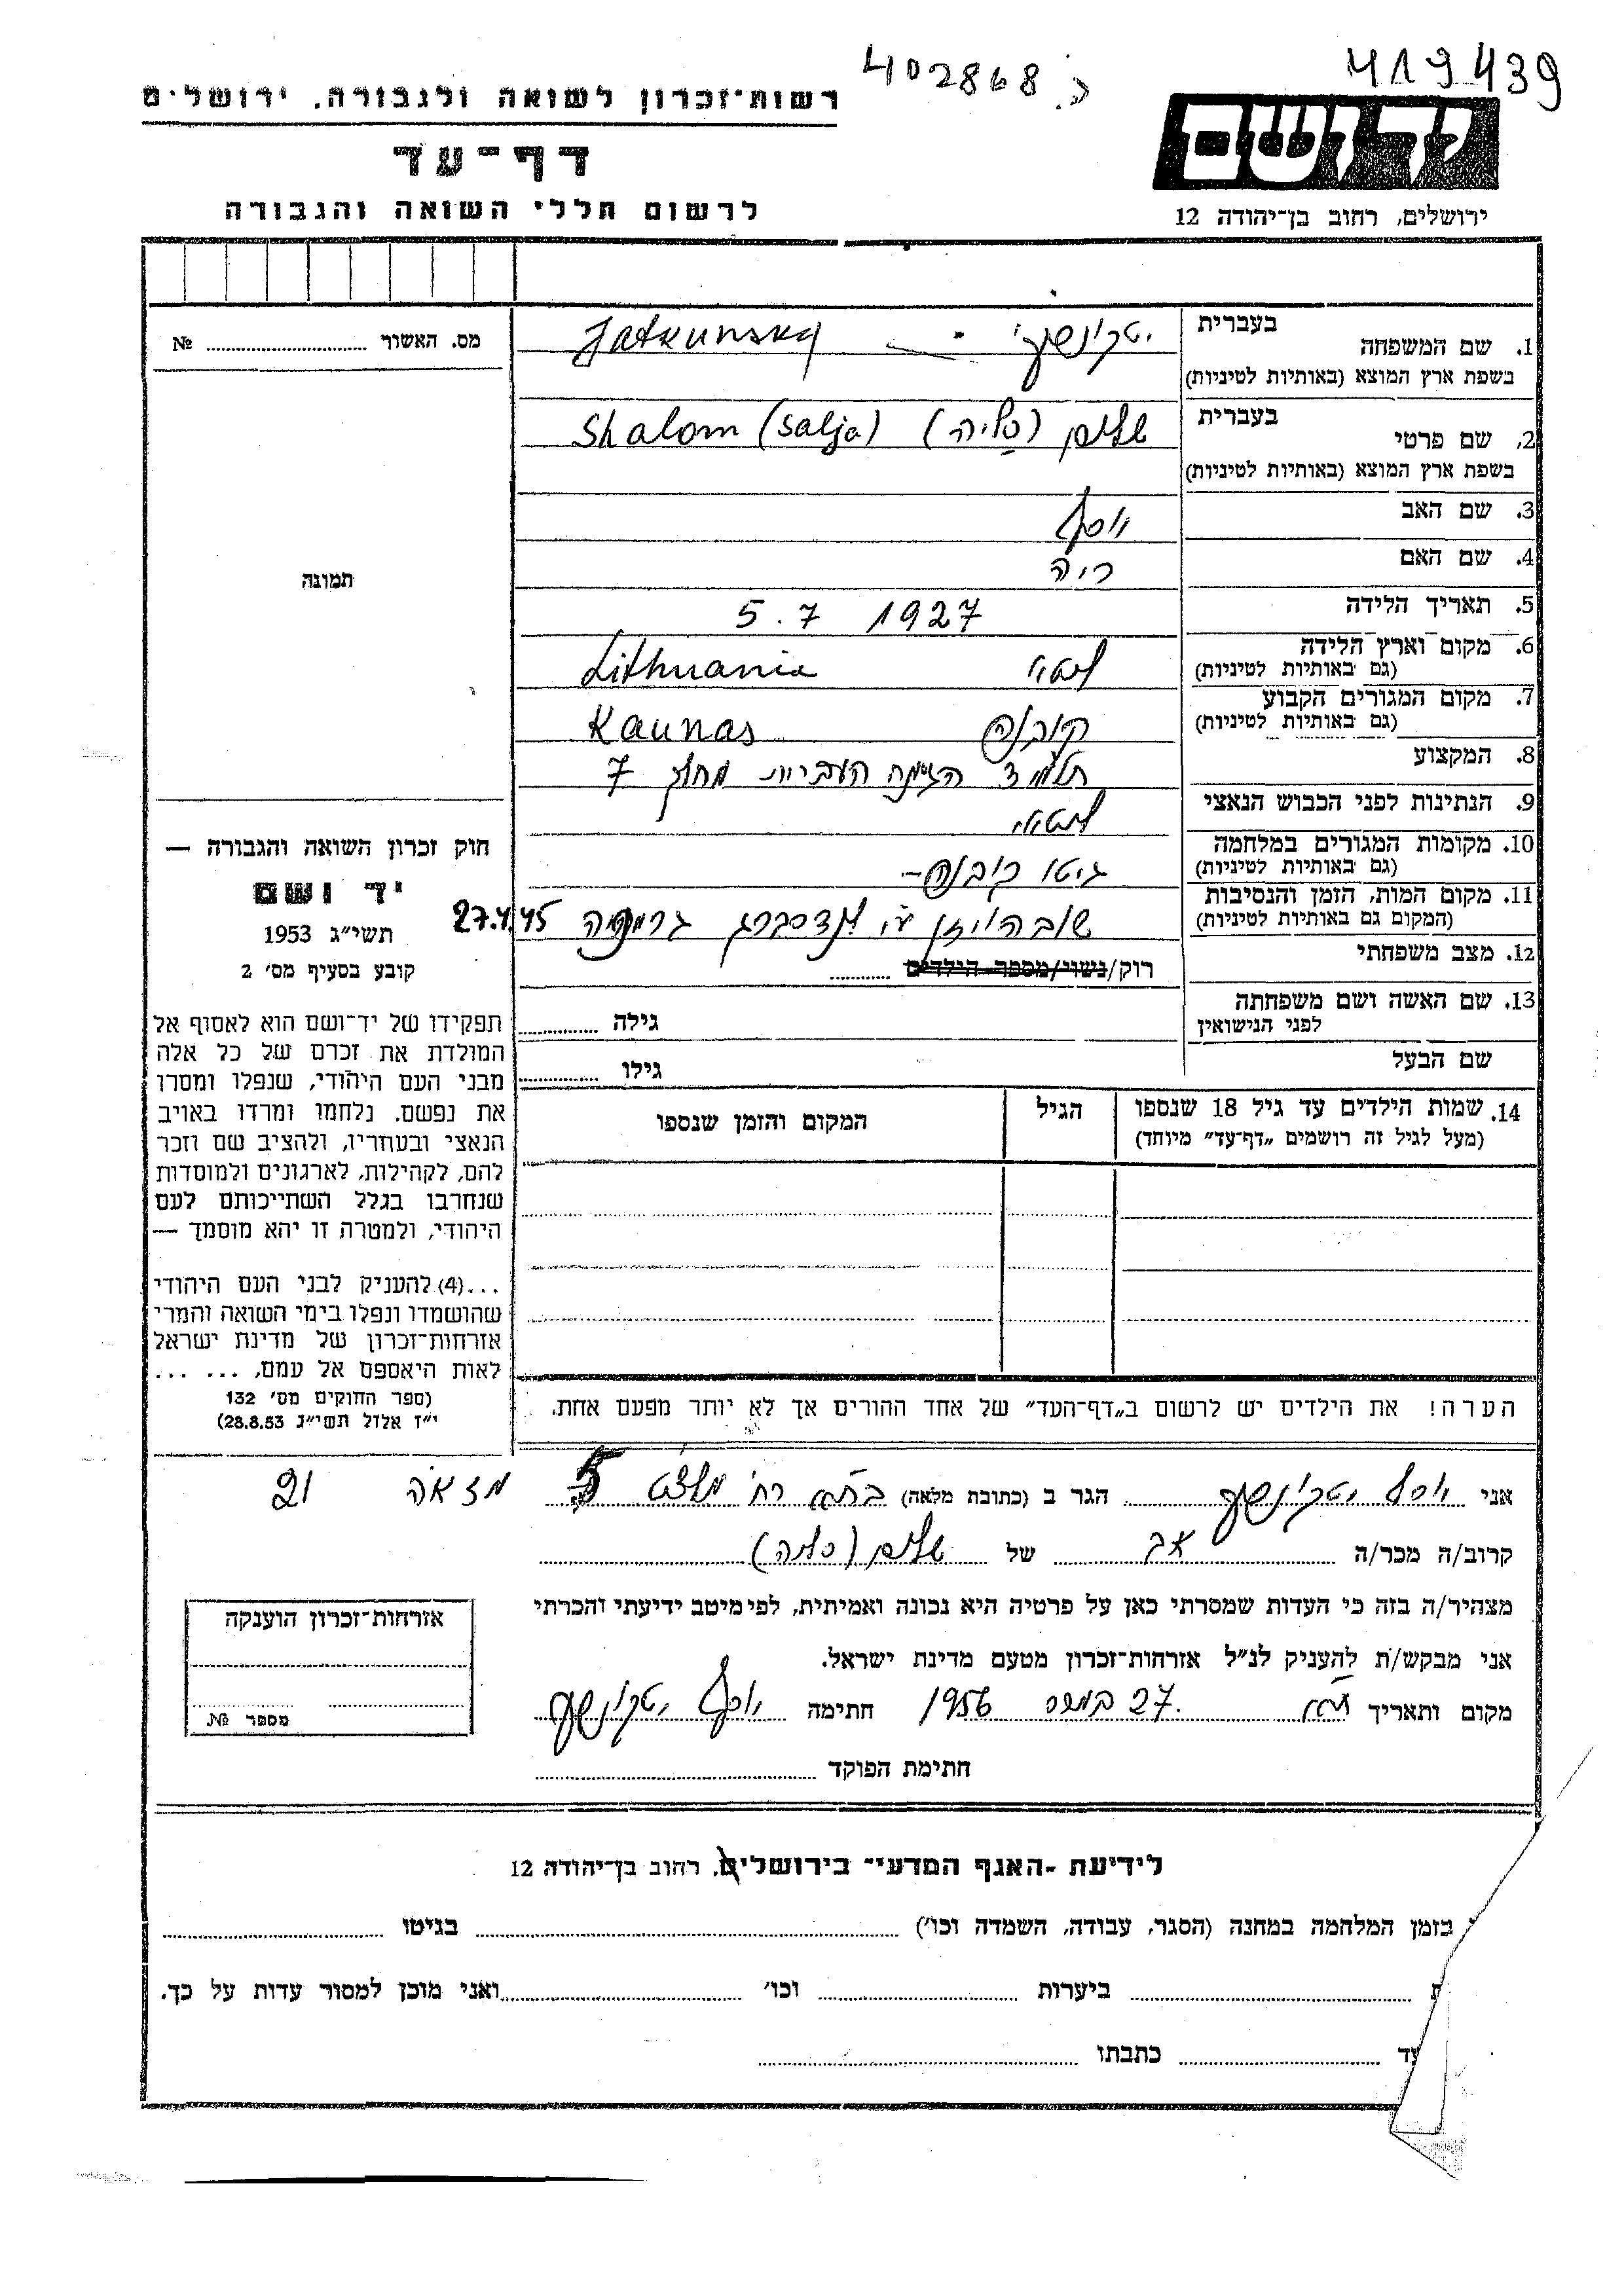 402868 ה.
419439
רשות־זכרון לשואה ולגבורה, ירושלים
דף־עד
לרשום חללי השואה והגבורה
יד ושם
ירושלים, רחוב בן־יהודה 12
מס. האשור № 
תמונה
1. שם המשפחה בעברית יטקונסקי - Jatkunsky
בשפת ארץ המוצא (באותיות לטיניות)
2. שם פרטי בעברית שלום (סליה) Shalom (Salja)
בשפת ארץ המוצא (באותיות לטיניות)
3. שם האב יוסף
4. שם האם
5. תאריך הלידה 5.7 1927
6. מקום וארץ הלידה ליטא Lithuania
(גם באותיות לטיניות)
7. מקום המגורים הקבוע קובנה Kaunas
(גם באותיות לטיניות)
8. המקצוע תלמיד הגימנסיה העברית 7
9. הנתינות לפני הכבוש הנאצי ליטאי
10. מקומות המגורים במלחמה גיטו קובנה -
(גם באותיות לטיניות)
11. מקום המות, הזמן והנסיבות ע"י לנדסברג גרמניה 27.4.45
(המקום גם באותיות לטיניות)
12. מצב משפחתי רוק/נשוי/מספר הילדים
13. שם האשה ושם משפחתה גילה
לפני הנישואין
שם הבעל גילו
14. שמות הילדים עד גיל 18 שנספו הגיל המקום והזמן שנספו
(מעל לגיל זה רושמים „דף־עד” מיוחד)
הערה! את הילדים יש לרשום ב„דף־העד” של אחד ההורים אך לא יותר מפעם אחת.
חוק זכרון השואה והגבורה —
יד ושם
תשי״ג 1953
קובע בסעיף מס׳ 2
תפקידו של יד־ושם הוא לאסוף אל
המולדת את זכרם של כל אלה
מבני העם היהודי, שנפלו ומסרו
את נפשם, נלחמו ומרדו באויב
הנאצי ובעוזריו, ולהציב שם וזכר
להם, לקהילות, לארגונים ולמוסדות
שנחרבו בגלל השתייכותם לעם
היהודי, ולמטרה זו יהא מוסמך —
...(4) להעניק לבני העם היהודי
שהושמדו ונפלו בימי השואה והמרי
אזרחות־זכרון של מדינת ישראל
לאות היאספם אל עמם, ... ...
(ספר החוקים מס׳ 132
י״ז אלול תשי״ג 28.8.53)
אני יוסף יטקונסקי הגר ב (כתובת מלאה) רח' 5 21
קרוב/ה מכר/ה אב של שלום (סליה)
מצהיר/ה בזה כי העדות שמסרתי כאן על פרטיה היא נכונה ואמיתית, לפי מיטב ידיעתי והכרתי
אני מבקש/ת להעניק לנ״ל אזרחות־זכרון מטעם מדינת ישראל.
מקום ותאריך 27 1956 חתימה יוסף יטקונסקי
חתימת הפוקד
אזרחות־זכרון הוענקה
מספר №
לידיעת -האגף המדעי־ בירושלים, רחוב בן־יהודה 12
בזמן המלחמה במחנה (הסגר, עבודה, השמדה וכו׳) בגיטו
ת ביערות וכו׳ ואני מוכן למסור עדות על כך.
עד כתבתו